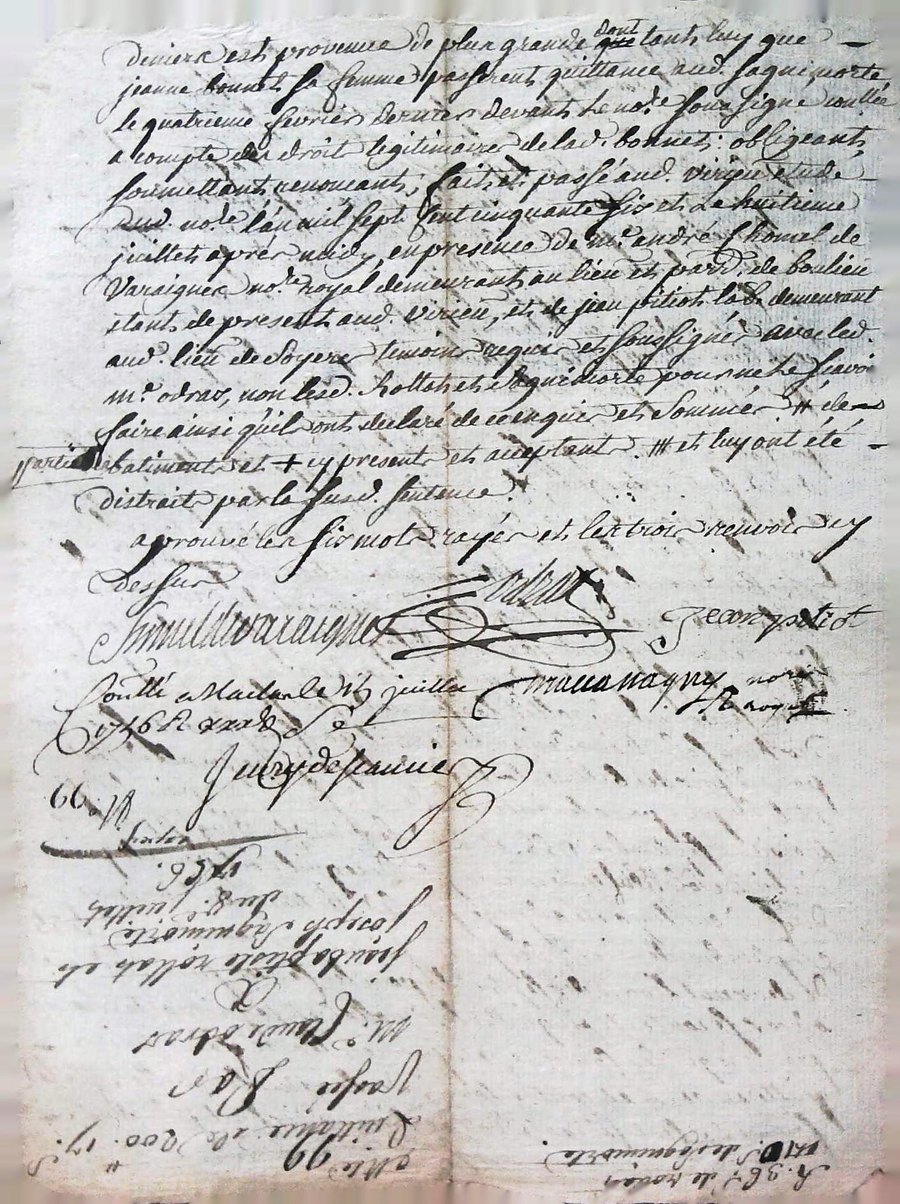 deniers est provenue de plus grande dont que tant luy que
jeanne bonnet sa femme passerent quittance aud. Saqnimorte
le quatrieme fevrier dernier devant le nore. soussigné conllée
a compte des droit legitimaire de lad. bonnet; obligeant,
soumettant, renonçant, fait et passé aud. virieu etude
dud. nore. l'an mil sept cent cinquante six et le huitieme
juillet après midy, en presence de me. andré Chomel de
Varaignes nore. royal demeurant au lieu et parr. de boulieu
etant de present aud. virieu, et de jean pitiot lab. demeurant
aud. lieu de Soyere temoins requis et soussignés avec led.
me. odras, non lesd. Rollat et Saqnimorte pour ne le sçavoir
faire ainsi qu'il ont declaré de ce enquis et sommés # de
partie batiments et + cy present et acceptant. ## et luy ont été
distrait par la susd. sentence.
aprouvé les six mots rayés et les trois renvois cy
dessus
odras
Chomel de varaignes
Jean pitiot
Conllé a Maclas le 15 juillet
nore
1756 R
royal
66.
1756.
du 8e. juillet
joseph Saqnimorte
jean baptiste rollat et
a
Me. Claude odras
passée Par
Quittance de 200. 17 s
Cotte 22
1710. S. de Saqnimorte
R. 367 de